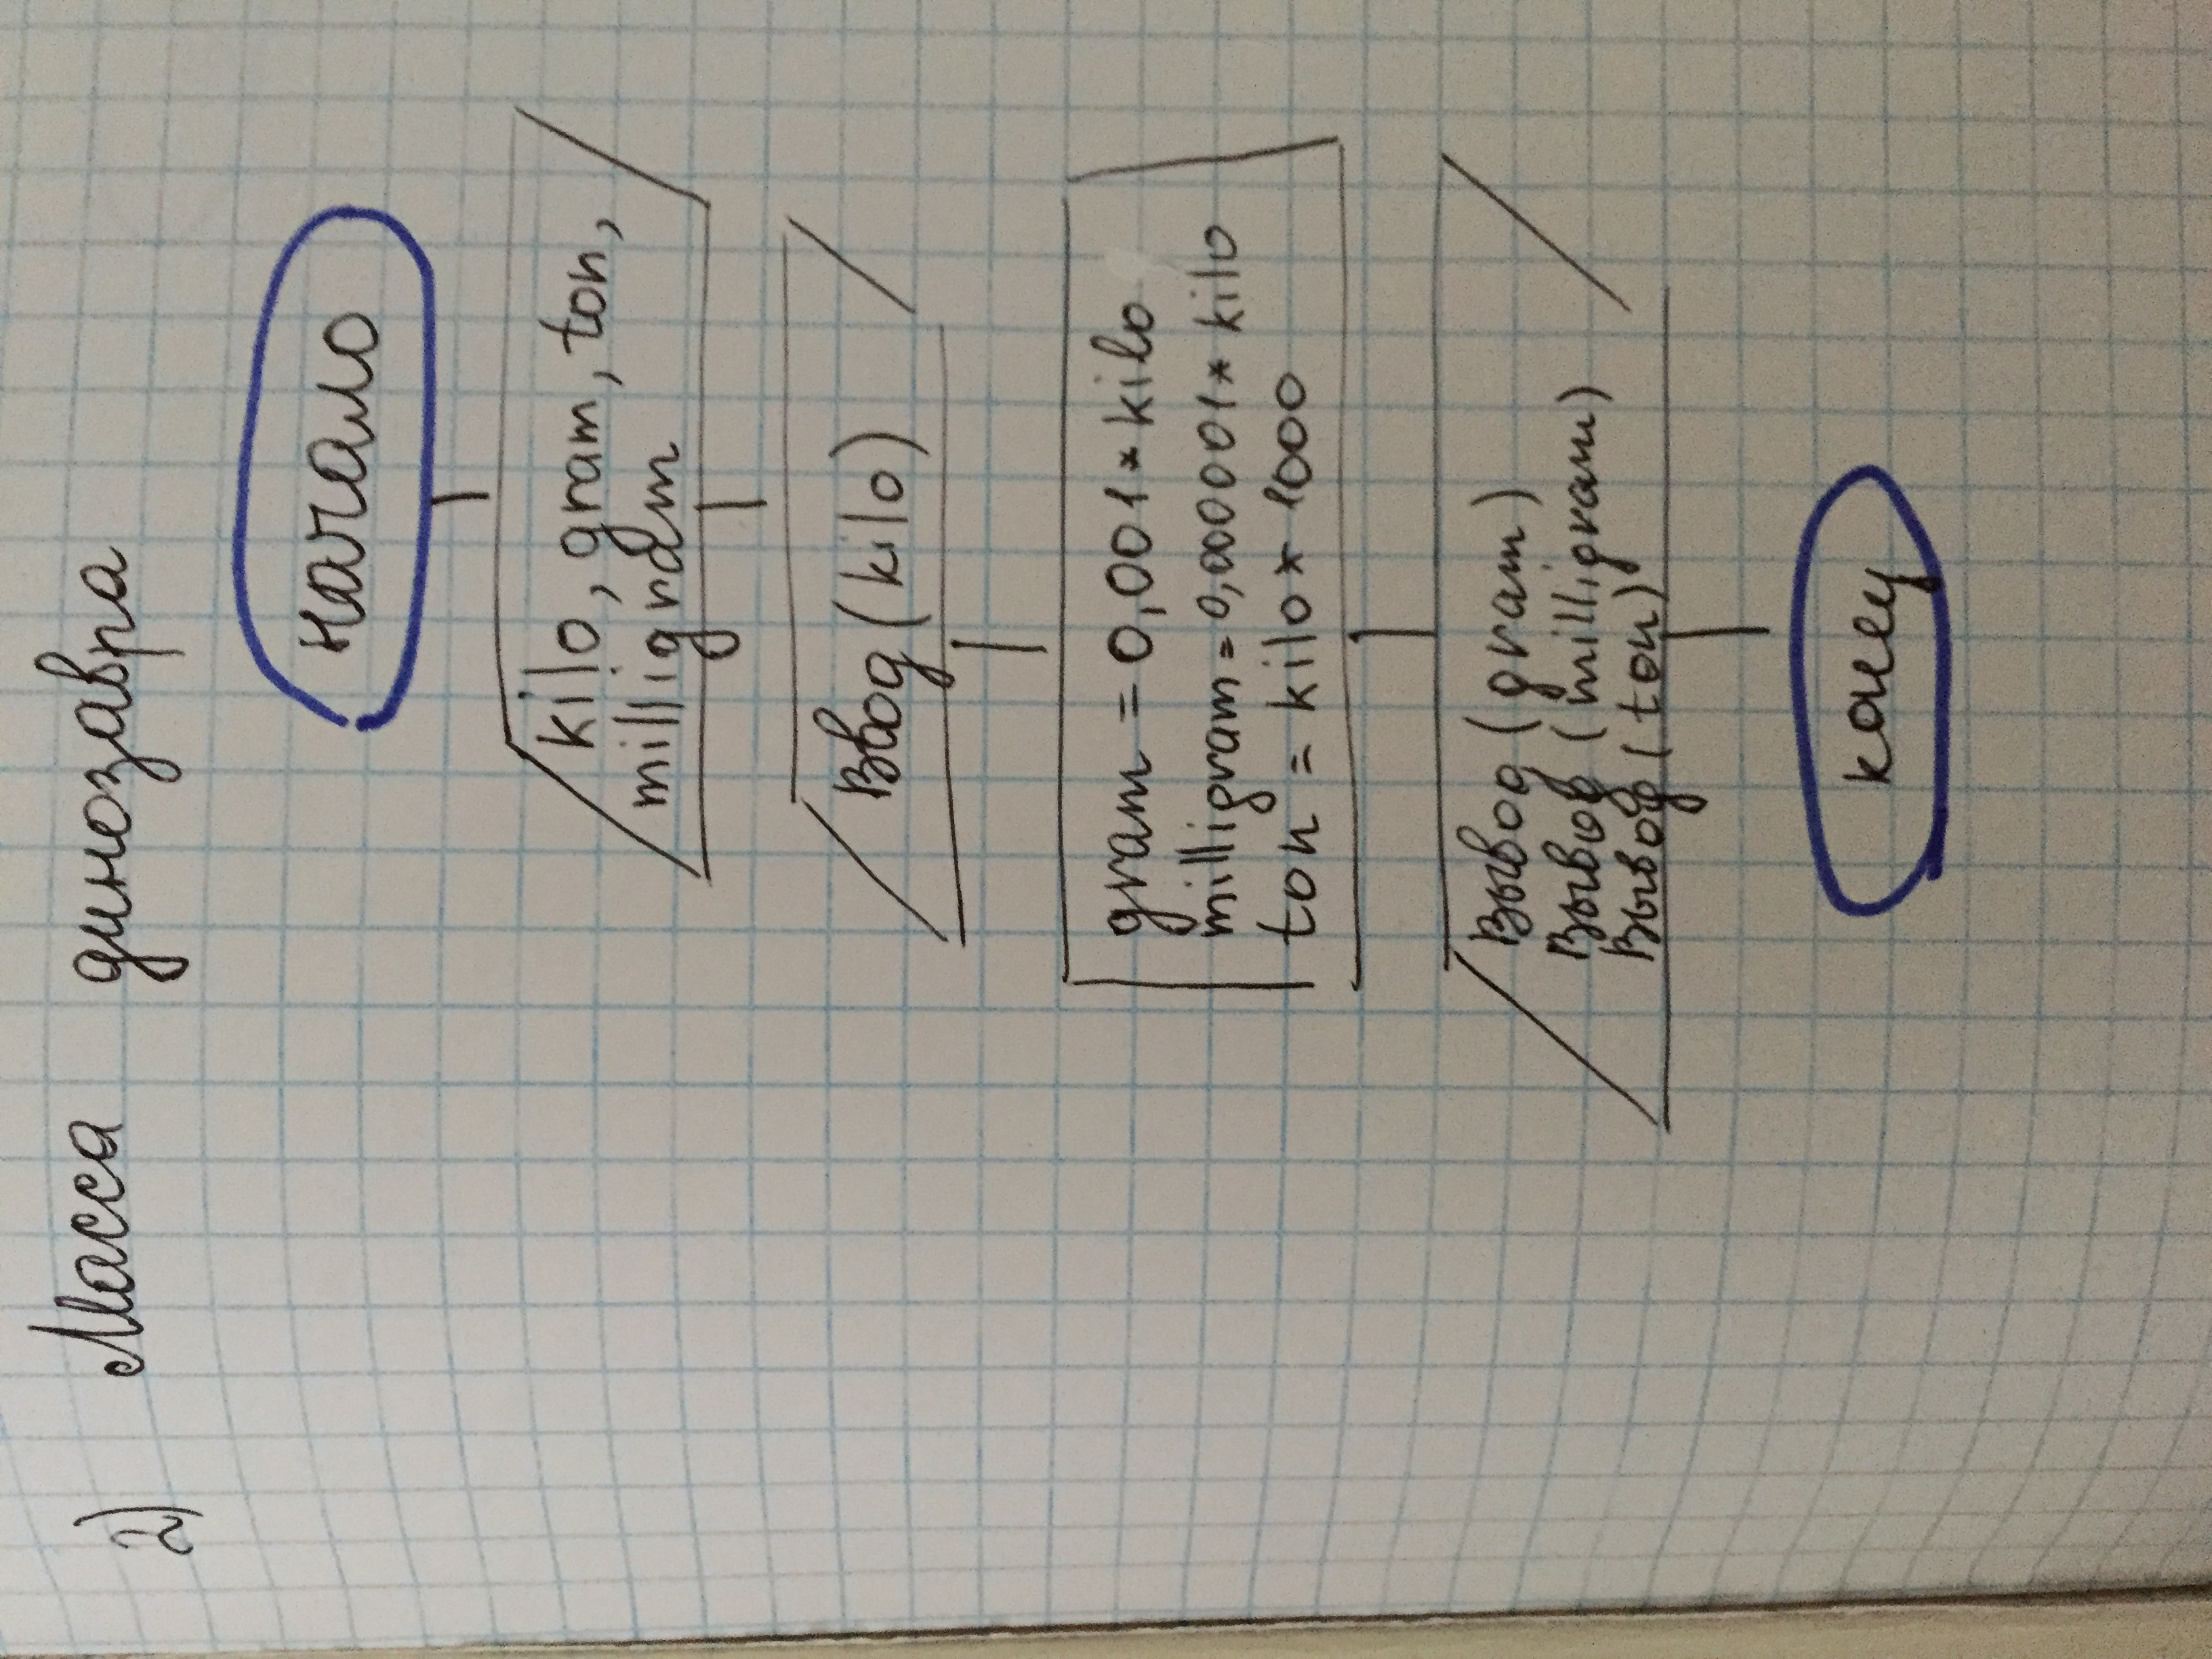 2) Масса динозавра
начало
kilo, gram, ton,
milligram
Ввод (kilo)
gram = 0,001 * kilo
milligram = 0,000001 * kilo
ton = kilo * 1000
Вывод (gram)
Вывод (milligram)
Вывод (ton)
конец